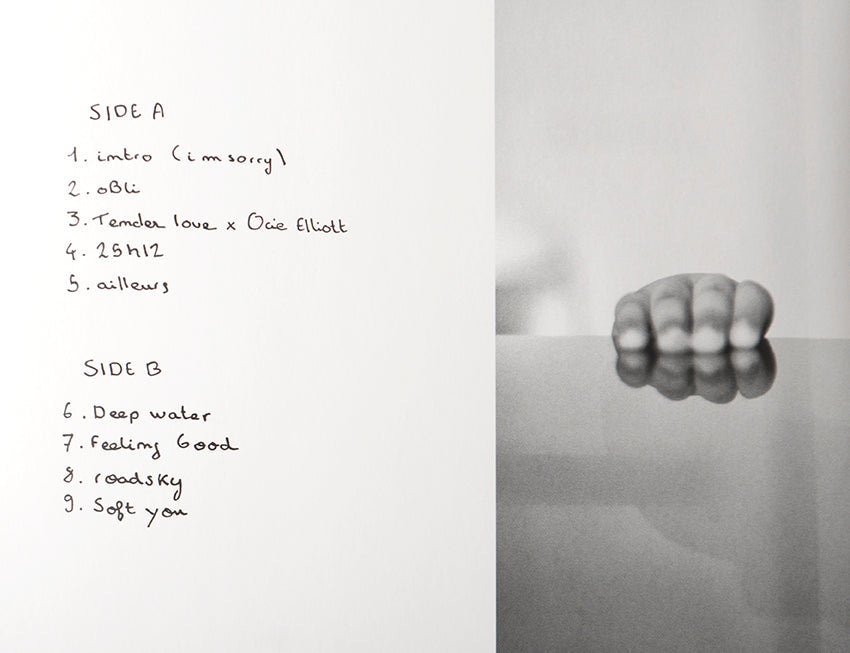 SIDE A
1. intro (i m sorry)
2. oBli
3. Tender love x Ocie Elliott
4. 25h12
5. ailleurs
SIDE B
6. Deep water
7. Feeling Good
8. roadsky
9. Soft you